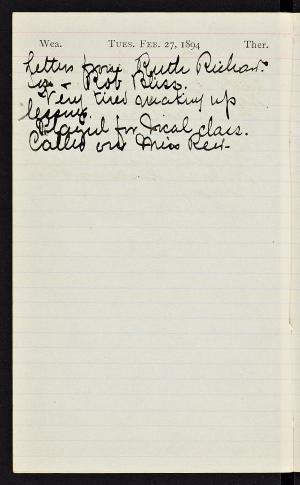 Wea. TUES. FEB. 27, 1894 Ther.
Letters from Ruth Richard-
son & Rob Bliss.
Very tired making up
lessons.
Played for vocal class.
Called on Miss